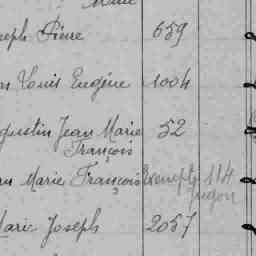 Marie
seph Pierre 659
n Louis Eugène 1004
gustin Jean Marie 52
François
n Marie François Exempté 114
Jugon
Marie Joseph 2057